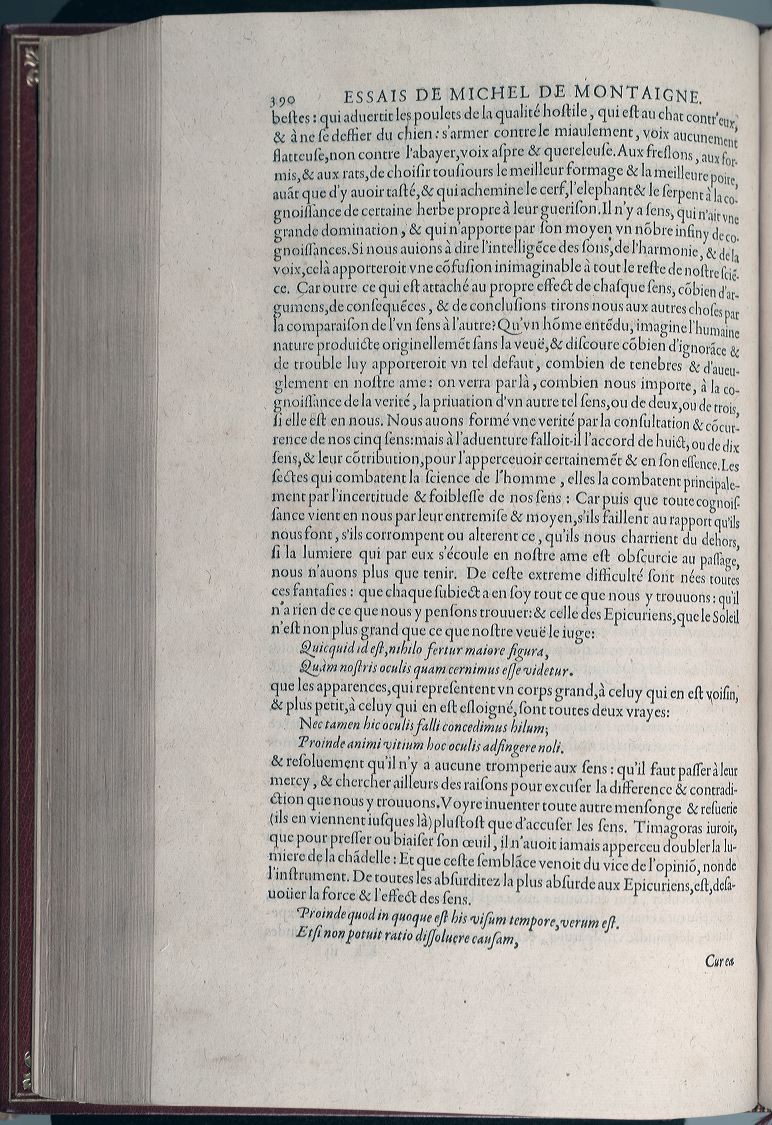 390 ESSAIS DE MICHEL DE MONTAIGNE.
beſtes : qui aduertit les poulets de la qualité hoſtile, qui eſt au chat contr'eux,
& à ne ſe deffier du chien : s'armer contre le miaulement, voix aucunement
flatteuſe, non contre l'abayer, voix aſpre & quereleuſe. Aux freſlons, aux for-
mis, & aux rats, de choiſir touſiours le meilleur formage & la meilleure poire,
auāt que d'y auoir taſté, & qui achemine le cerf, l'elephant & le ſerpent à la co-
gnoiſſance de certaine herbe propre à leur gueriſon. Il n'y a ſens, qui n'ait vne
grande domination, & qui n'apporte par ſon moyen vn nōbre infiny de co-
gnoiſſances. Si nous auions à dire l'intelligēce des ſons, de l'harmonie, & de la
voix, celà apporteroit vne cōfuſion inimaginable à tout le reſte de noſtre ſciē-
ce. Car outre ce qui eſt attaché au propre effect de chaſque ſens, cōbien d'ar-
gumens, de conſequēces, & de concluſions tirons nous aux autres choſes par
la comparaiſon de l'vn ſens à l'autre? Qu'vn hōme entēdu, imagine l'humaine
nature produicte originellemēt ſans la veuë, & diſcoure cōbien d'ignorāce &
de trouble luy apporteroit vn tel defaut, combien de tenebres & d'aueu-
glement en noſtre ame : on verra par là, combien nous importe, à la co-
gnoiſſance de la verité, la priuation d'vn autre tel ſens, ou de deux, ou de trois,
ſi elle eſt en nous. Nous auons formé vne verité par la conſultation & cōcur-
rence de nos cinq ſens : mais à l'aduenture falloit-il l'accord de huict, ou de dix
ſens, & leur cōtribution, pour l'apperceuoir certainemēt & en ſon eſſence. Les
ſectes qui combatent la ſcience de l'homme, elles la combatent principale-
ment par l'incertitude & foibleſſe de nos ſens : Car puis que toute cognoiſ-
ſance vient en nous par leur entremiſe & moyen, s'ils faillent au rapport qu'ils
nous font, s'ils corrompent ou alterent ce, qu'ils nous charrient du dehors,
ſi la lumiere qui par eux s'écoule en noſtre ame eſt obſcurcie au paſſage,
nous n'auons plus que tenir. De ceſte extreme difficulté ſont nées toutes
ces fantaſies : que chaque ſubiect a en ſoy tout ce que nous y trouuons : qu'il
n'a rien de ce que nous y penſons trouuer : & celle des Epicuriens, que le Soleil
n'eſt non plus grand que ce que noſtre veuë le iuge :
Quicquid id eſt, nihilo fertur maiore figura,
Quàm noſtris oculis quam cernimus eſſe videtur.
que les apparences, qui repreſentent vn corps grand, à celuy qui en eſt voiſin,
& plus petit, à celuy qui en eſt eſloigné, ſont toutes deux vrayes :
Nec tamen hic oculis falli concedimus hilum;
Proinde animi vitium hoc oculis adfingere noli.
& reſoluement qu'il n'y a aucune tromperie aux ſens : qu'il faut paſſer à leur
mercy, & chercher ailleurs des raiſons pour excuſer la difference & contradi-
ction que nous y trouuons. Voyre inuenter toute autre menſonge & reſuerie
(ils en viennent iuſques là) pluſtoſt que d'accuſer les ſens. Timagoras iuroit,
que pour preſſer ou biaiſer ſon œuil, il n'auoit iamais apperceu doubler la lu-
miere de la chādelle : Et que ceſte ſemblāce venoit du vice de l'opiniō, non de
l'inſtrument. De toutes les abſurditez la plus abſurde aux Epicuriens, eſt, deſa-
uoüer la force & l'effect des ſens.
Proinde quod in quoque eſt his viſum tempore, verum eſt.
Etſi non potuit ratio diſſoluere cauſam,
Cur ea